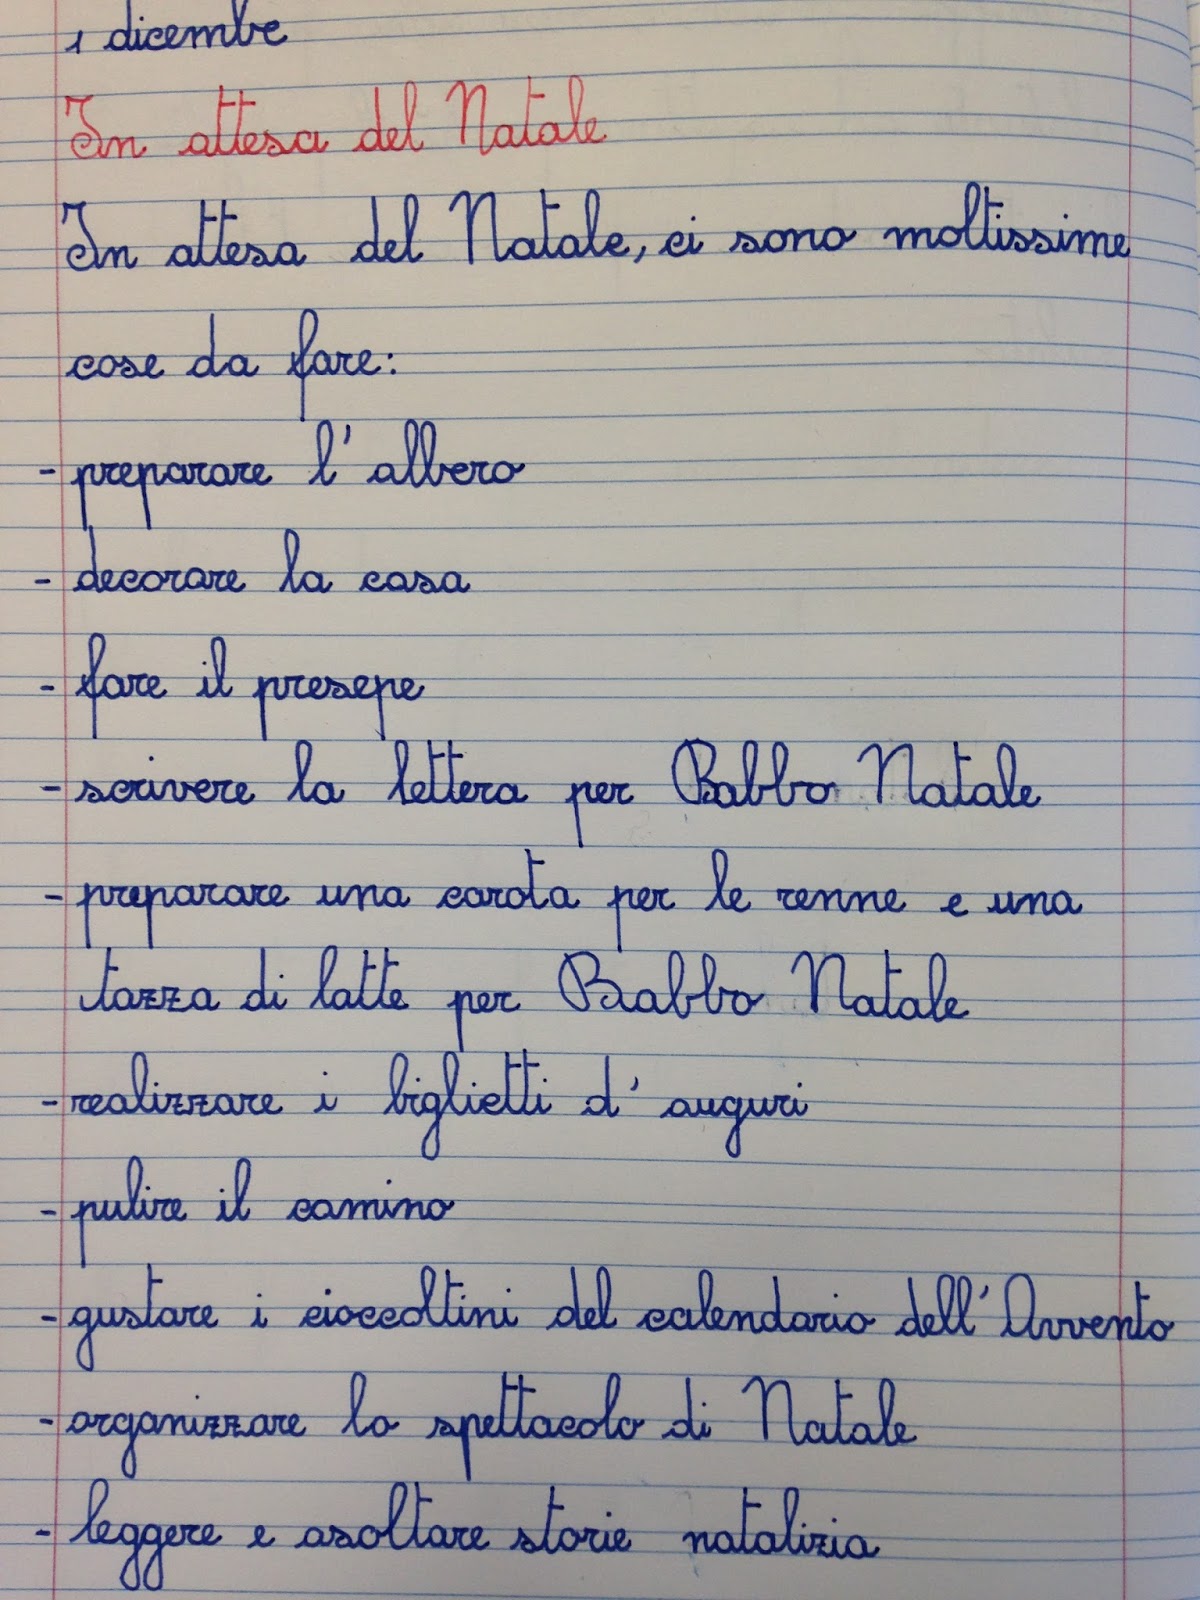 1 dicembre
In attesa del Natale
In attesa del Natale, ci sono moltissime
cose da fare:
- preparare l'albero
- decorare la casa
- fare il presepe
- scrivere la lettera per Babbo Natale
- preparare una carota per le renne e una
tazza di latte per Babbo Natale
- realizzare i biglietti d'auguri
- pulire il camino
- gustare i cioccoltini del calendario dell'Avvento
- organizzare lo spettacolo di Natale
- leggere e asoltare storie natalizia